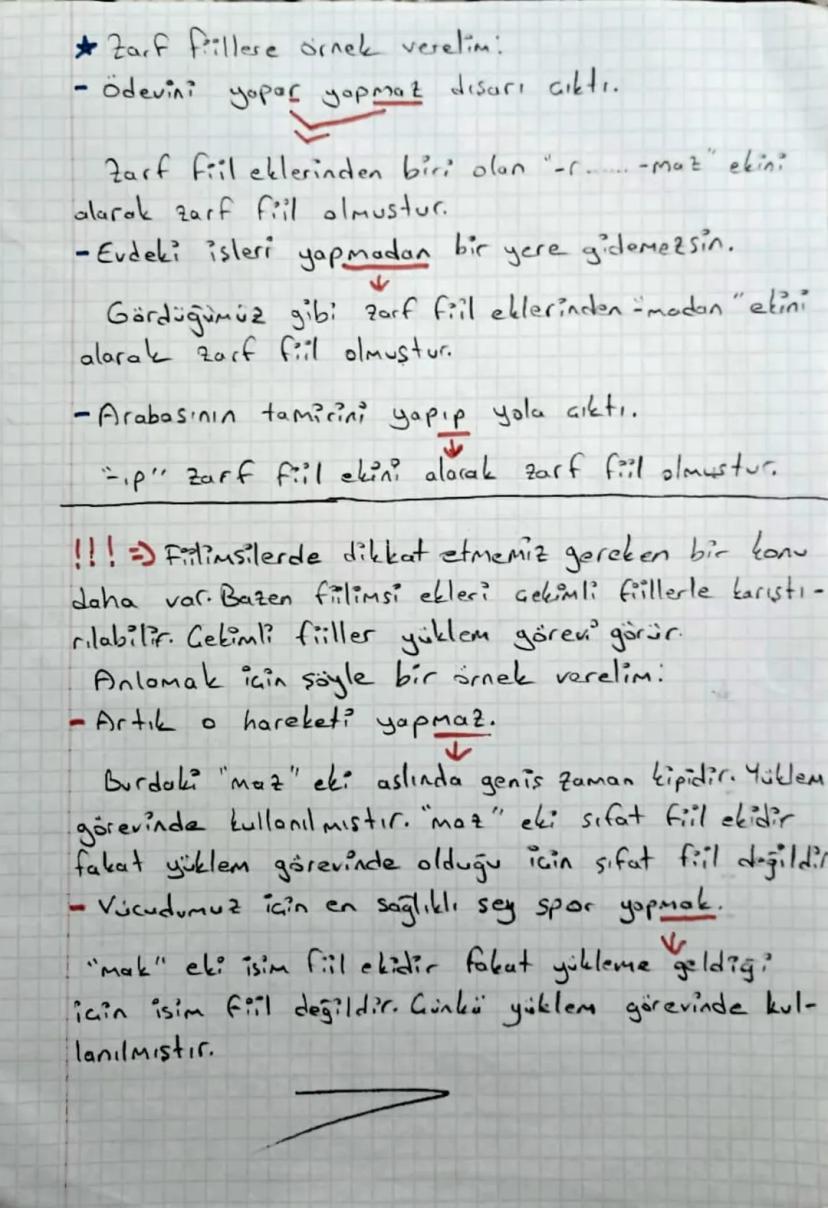 ★ Zarf fiillere örnek verelim:
- Ödevini yapar yapmaz dısarı cıktı.
Zarf fiil eklerinden biri olan "-r...... -maz" ekini
alarak zarf fiil olmustur.
- Evdeki işleri yapmadan bir yere gidemezsin.
Gördüğümüz gibi zarf fiil eklerinden "-madan" ekini
alarak zarf fiil olmuştur.
- Arabasının tamirini yapıp yola cıktı.
"-ıp" zarf fiil ekini alarak zarf fiil olmustur.
!!! ⇒ Fiilimsilerde dikkat etmemiz gereken bir konu
daha var. Bazen fiilimsi ekleri cekimli fiillerle karıştı-
rılabilir. Cekimli fiiller yüklem görevi görür.
Anlamak icin şöyle bir örnek verelim:
- Artık o hareketi yapmaz.
Burdaki "maz" eki aslında genis zaman kipidir. Yüklem
görevinde kullanılmıstır. "maz" eki sıfat fiil ekidir
fakat yüklem görevinde olduğu icin sıfat fiil değildir
- Vücudumuz icin en sağlıklı sey spor yapmak.
"mak" eki isim fiil ekidir fakat yükleme geldiği
icin isim fiil değildir. Cünkü yüklem görevinde kul-
lanılmıstır.